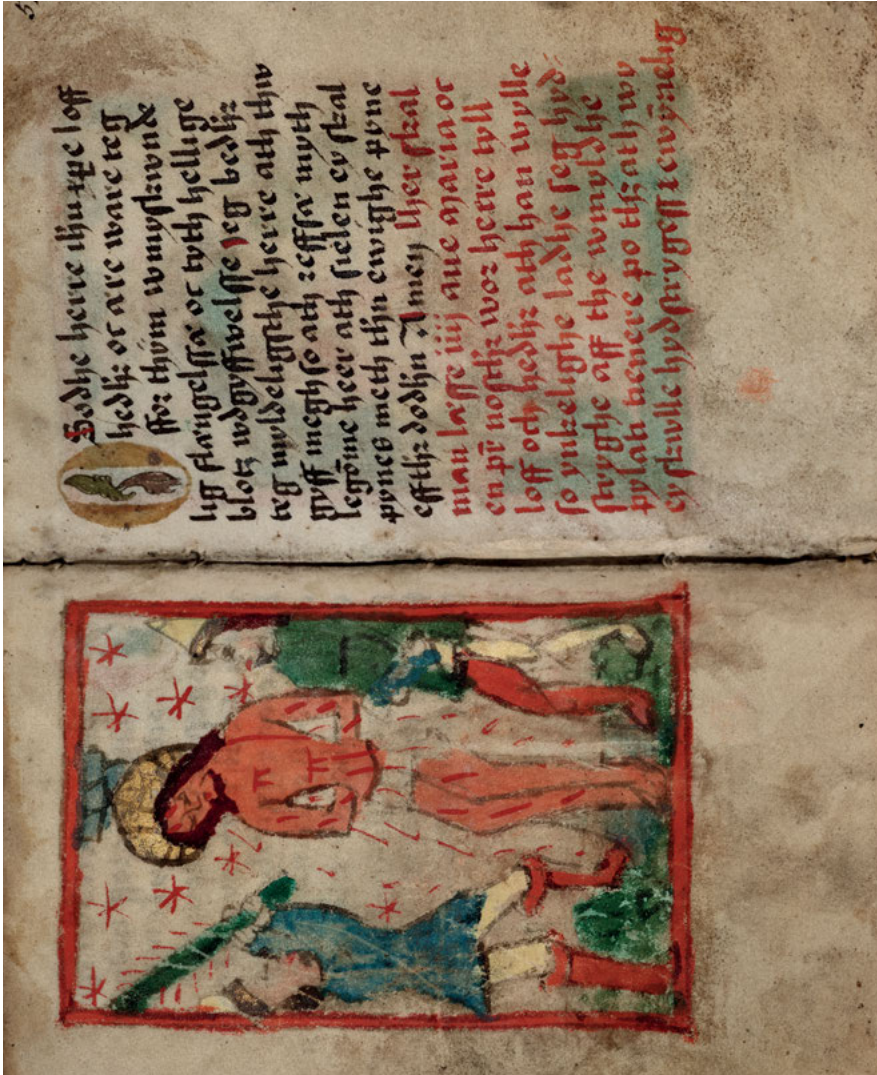 Godhe herre ihu xpe loff
hedhz oc ære wære teg
ffor thym wmyskwnde
lig slangelsſæ oc tyth hellige
blotz wdgyffwelsſe jeg bedhz
teg myldeligsthe herre ath thw
gyff megh so ath reffsſæ myth
legōme heer ath sielen ey skal
pynes meth thn ewighe pyne
effthz dodhn Amen Ther skal
man læsſe iiij aue maria oc
en pr nosthz wor herre tyll
loff och hedhz ath han wylle
so ynkelighe ladhe seg hyd
stryghe aff the wmyldhe
pylati tienere po thz ath wy
ey skwlle hydstrygesſ i ewynelig